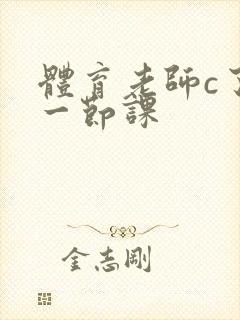 體育老師c了
一節課
金志剛